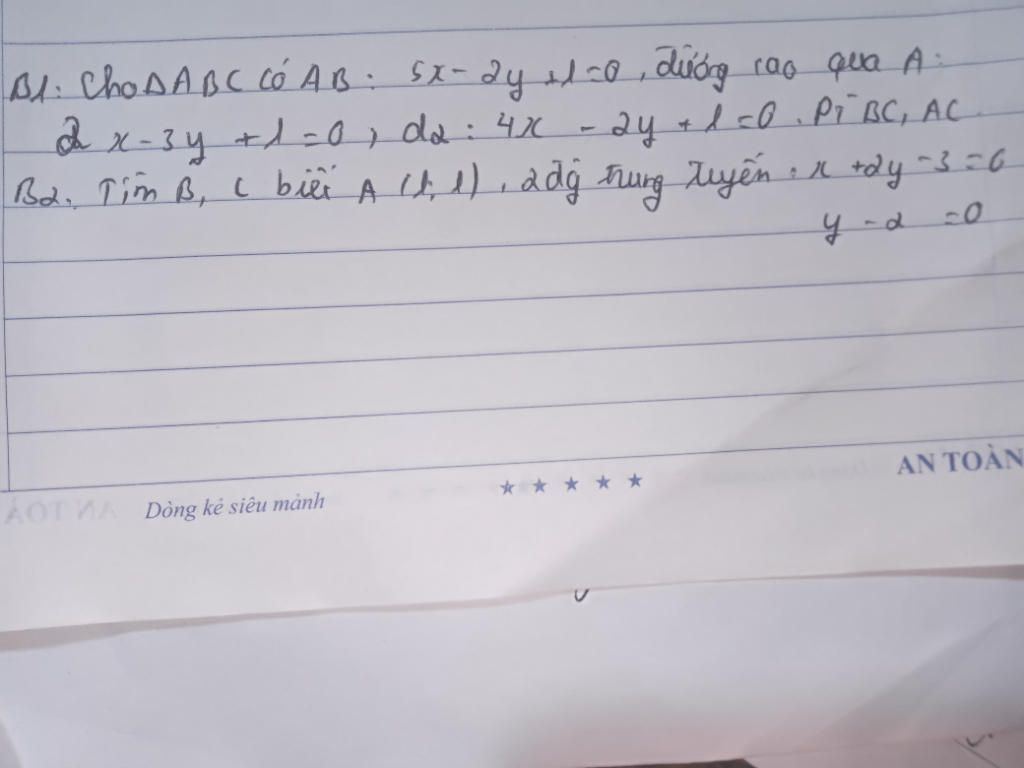 B1: Cho ΔABC có AB: 5x - 2y + 1 = 0, đường cao qua A:
2x - 3y + 1 = 0, d2: 4x - 2y + 1 = 0. PT BC, AC
B2. Tìm B, C biết A (1, 1), 2 đg trung tuyến: x + 2y - 3 = 0
y - 2 = 0
AN TOÀN
★ ★ ★ ★ ★
Dòng kẻ siêu mảnh